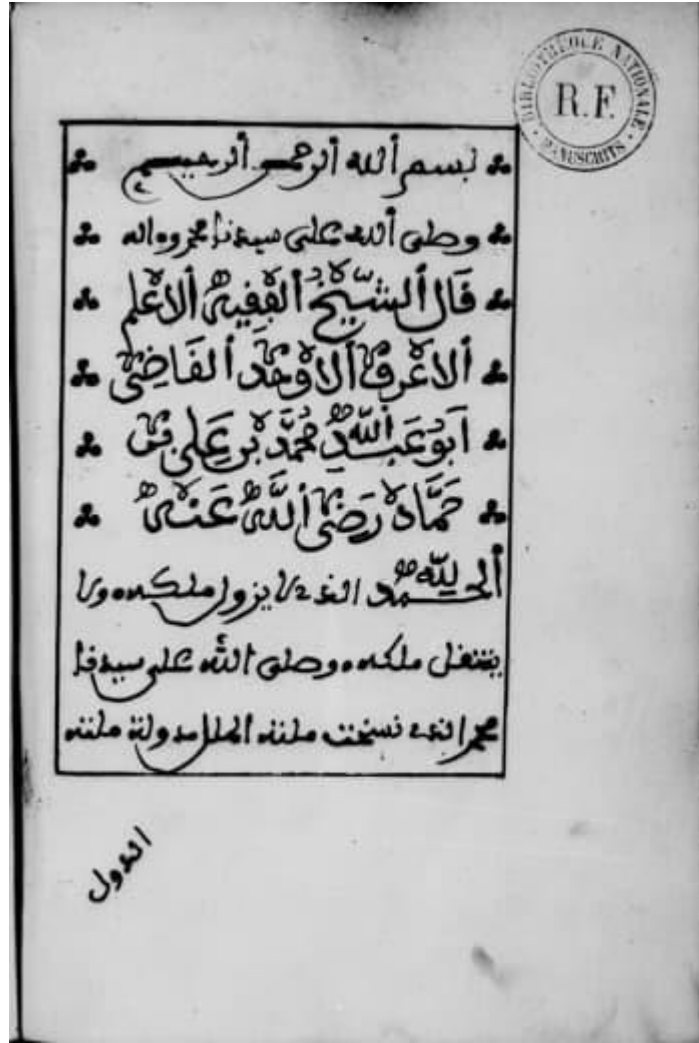 BIBLIOTHEQUE NATIONALE
R.F.
MANUSCRITS
بسم الله الرحمن الرحيم
وصلى الله على سيدنا محمد وءاله
قَالَ الشَّيْخُ الفقِيهُ الاَعْلَم
الاَعْرف الاَوْحَد القَاضِى
أَبُو عَبْد اللَّهِ مُحَمَّد بْن عَلِى بْن
حَمَّادُه رَضِىَ اللَّهُ عَنْهُ
الحمد لله الذى لا يزول ملكه ولا
ينتقل ملكه وصلى الله على سيدنا
محمد الذى نسخت ملته الملل ودولة ملته
الدول